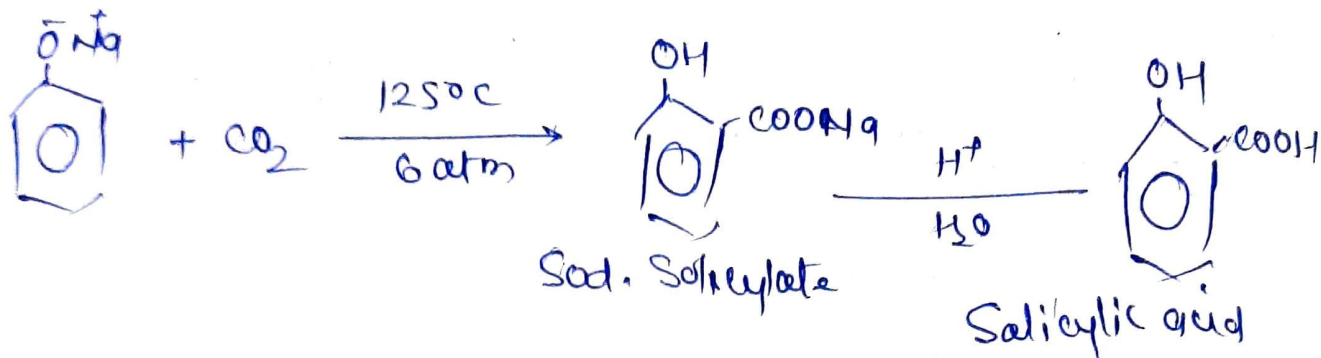 ŌN⁺a
+ CO₂
125°C
6 atm
OH
COONa
Sod. Salicylate
H⁺
H₂O
OH
COOH
Salicylic acid